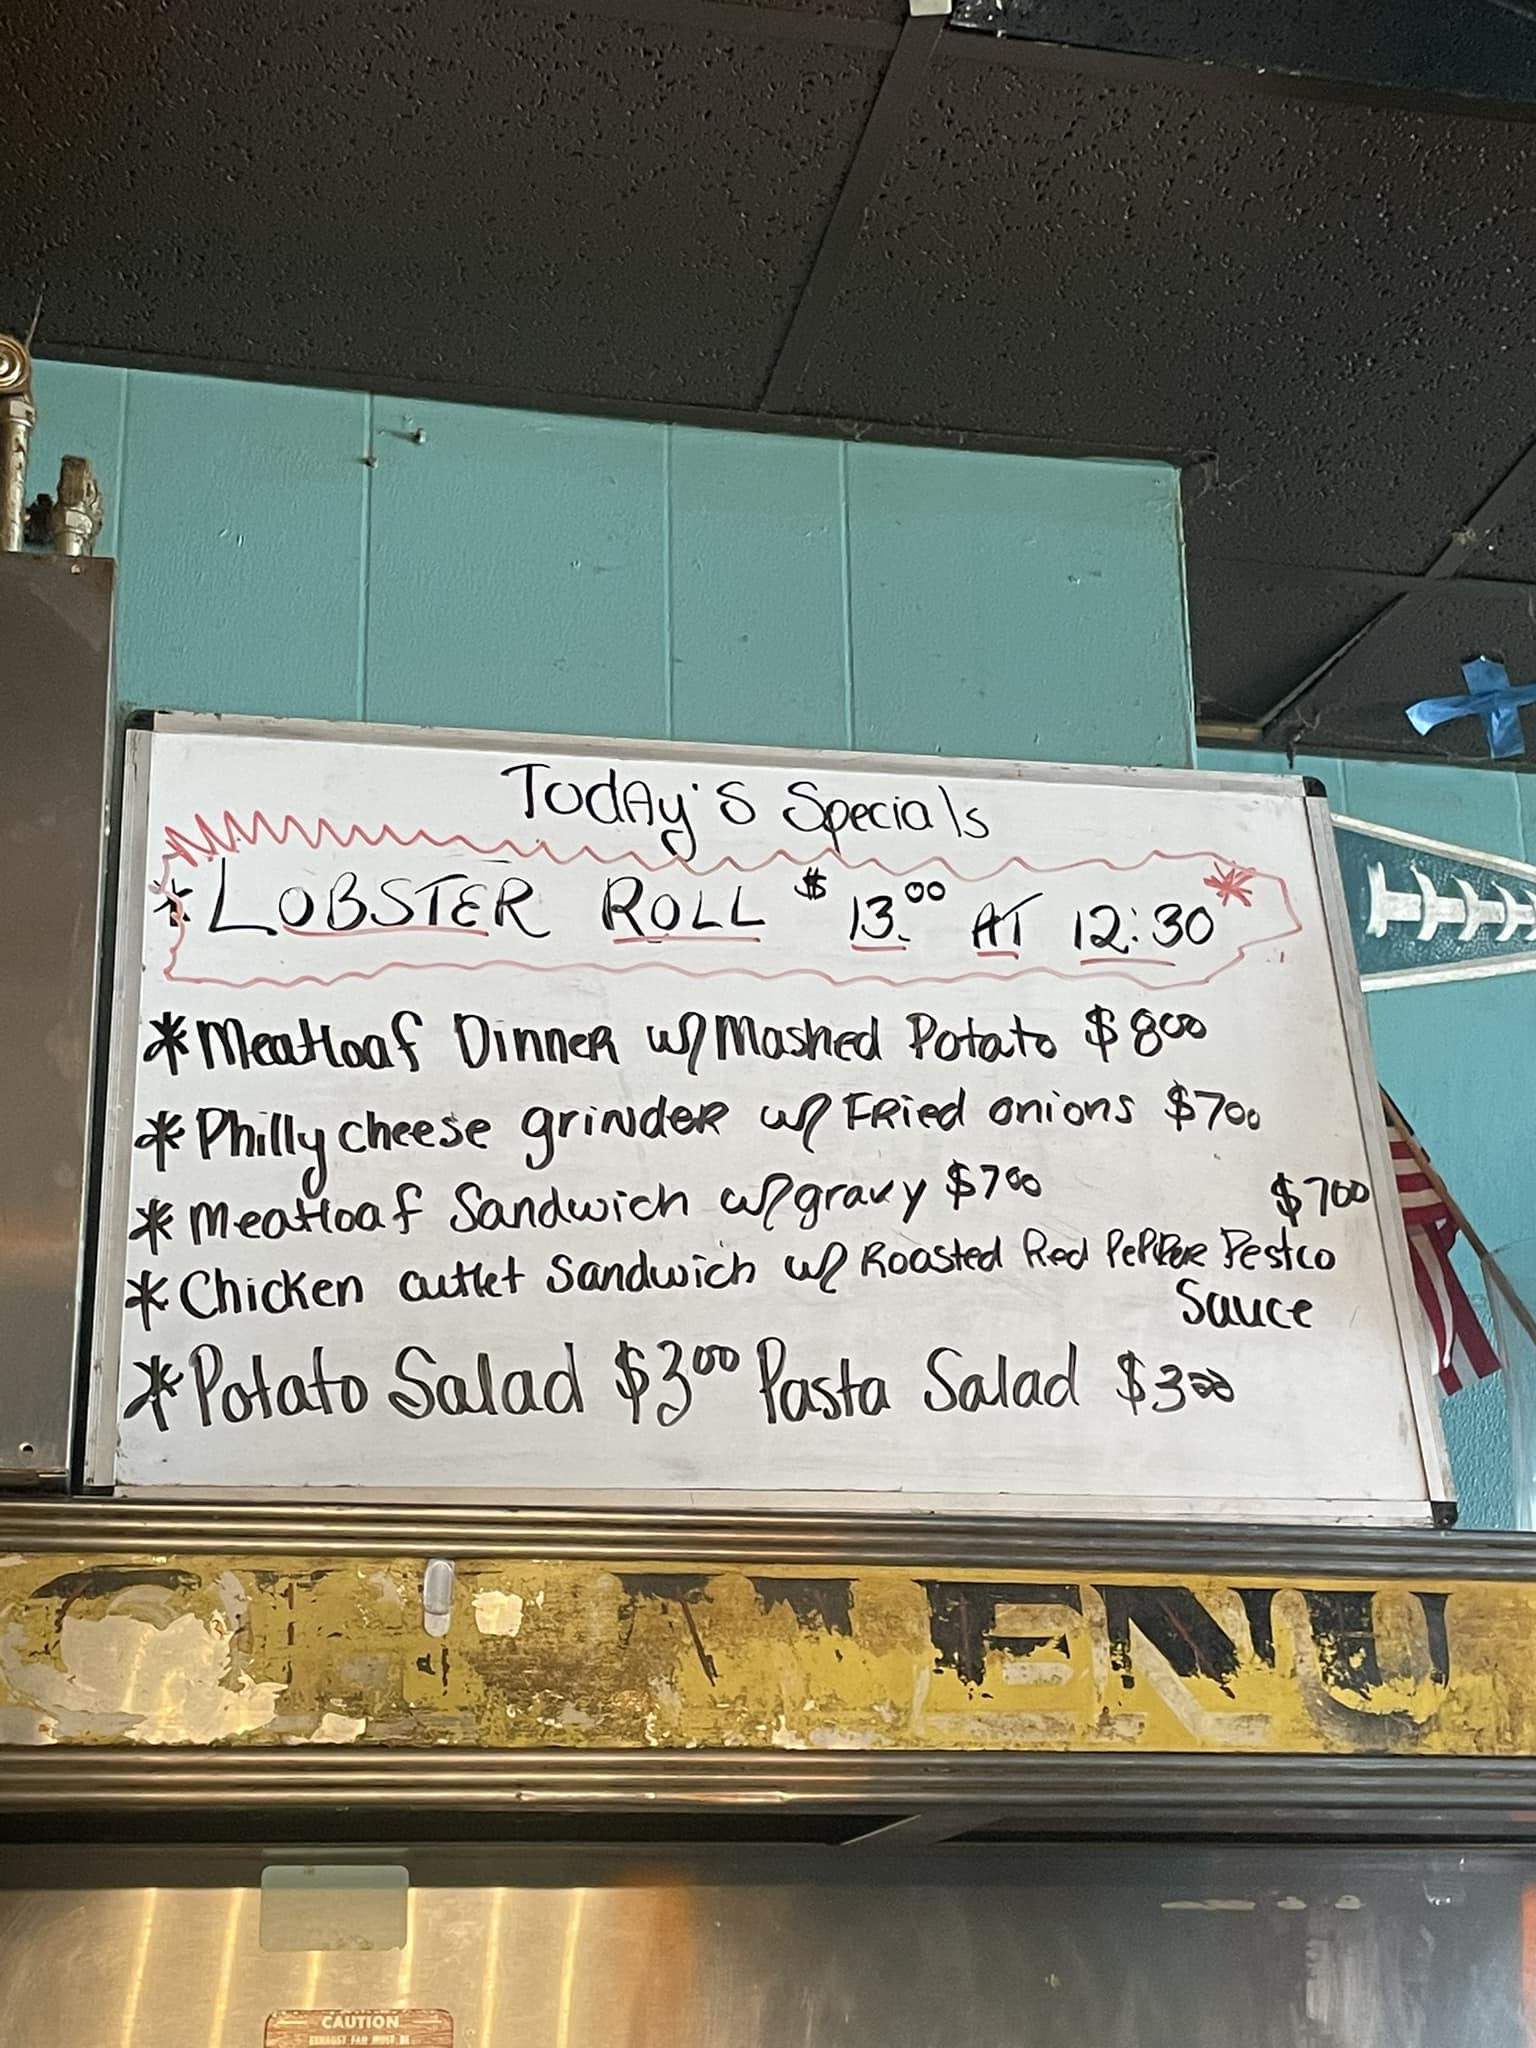 Today's Specials
* LOBSTER ROLL $13.00 AT 12:30 *
* Meatloaf Dinner w/ Mashed Potato $800
* Philly cheese grinder w/ Fried onions $700
* Meatloaf Sandwich w/ gravy $700
$700
* Chicken cutlet Sandwich w/ Roasted Red Pepper Pestco
Sauce
* Potato Salad $300 Pasta Salad $300
ENU
CAUTION
EXHAUST FAN MUST BE